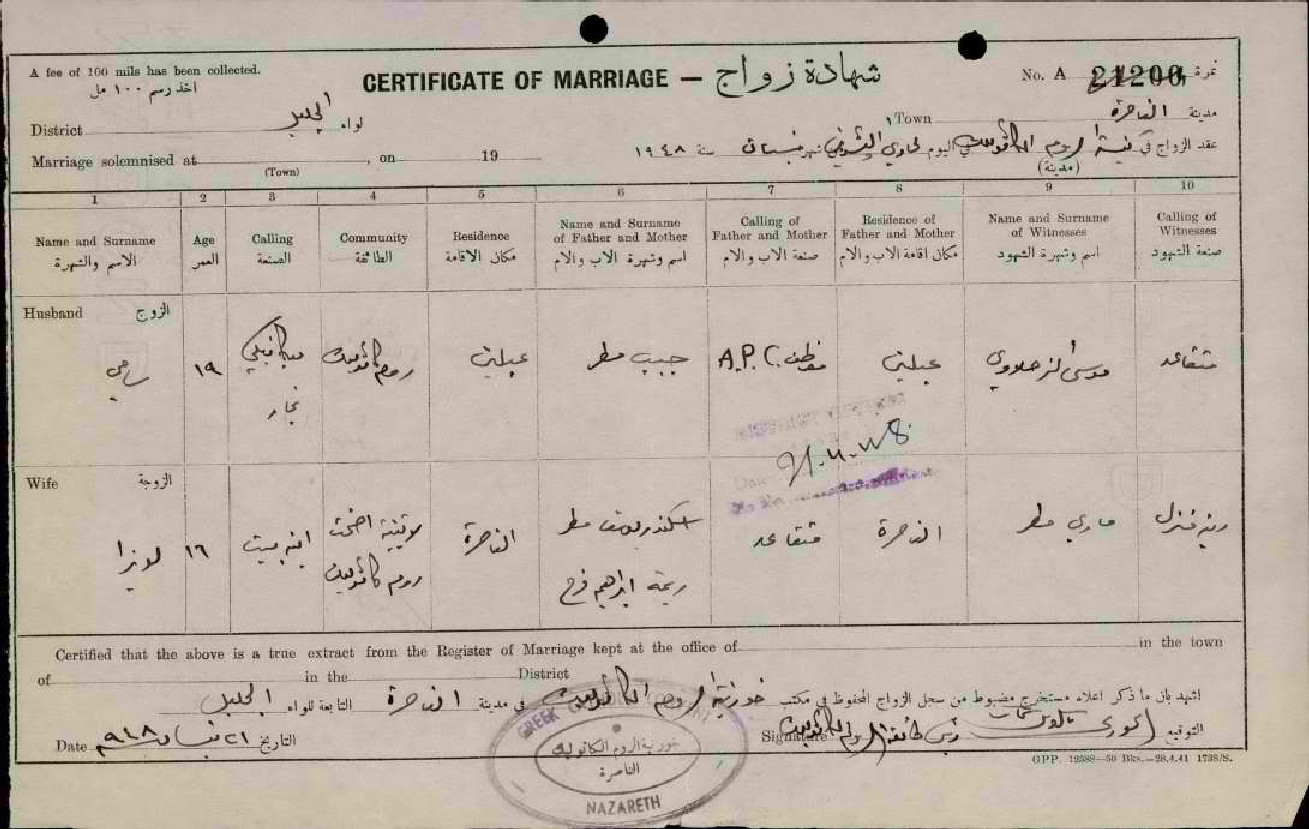 A fee of 100 mils has been collected.
اخذ رسم ١٠٠ مل
CERTIFICATE OF MARRIAGE — شهادة زواج
No. A 21206 نمرة
District لواء الجليل
Town مدينة الناصرة
Marriage solemnised at , on 19
(Town)
عقد الزواج في كنيسة الروم الكاثوليك في اليوم الحادي والعشرين شهر نيسان سنة ١٩٤٨
(مدينة)
1 2 3 4 5 6 7 8 9 10
Name and Surname
الاسم والشهرة
Age
العمر
Calling
الصنعة
Community
الطائفة
Residence
مكان الاقامة
Name and Surname of Father and Mother
اسم وشهرة الاب والام
Calling of Father and Mother
صنعة الاب والام
Residence of Father and Mother
مكان اقامة الاب والام
Name and Surname of Witnesses
اسم وشهرة الشهود
Calling of Witnesses
صنعة الشهود
Husband الزوج
سامي
١٩
ميكانيكي
نجار
روم كاثوليك
عبلين
حبيب مطر
موظف A.P.C.
عبلين
موسى الزهلاوي
متقاعد
21.4.48
Wife الزوجة
لويزا
١٦
ابنة بيت
روم كاثوليك
الناصرة
اسكندر يوسف مطر
ريمة ابراهيم فرح
متقاعد
الناصرة
ماري مطر
ربة منزل
Certified that the above is a true extract from the Register of Marriage kept at the office of in the town
of in the District
اشهد بان ما ذكر اعلاه مستخرج مضبوط من سجل الزواج المحفوظ في مكتب خورنية الروم الكاثوليك في مدينة الناصرة التابعة للواء الجليل
Date ٢١ نيسان ٩٤٨ التاريخ
Signature الخوري رئيس طائفة الروم الكاثوليك التوقيع
GPP. 12588—50 Bks.—28.4.41 1738/S.
GREEK
خورنية الروم الكاثوليك
الناصرة
NAZARETH